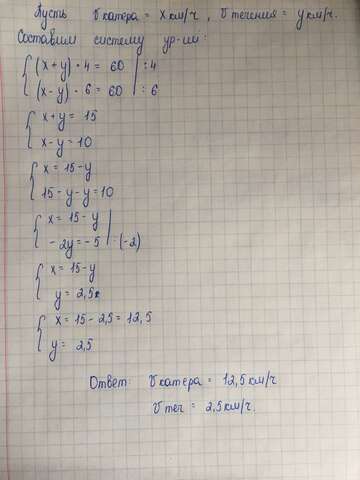 Пусть V катера = x км/ч, V течения = y км/ч.
Составим систему ур-ий:
{ (x + y) · 4 = 60 | : 4
(x - y) · 6 = 60 | : 6
{ x + y = 15
x - y = 10
{ x = 15 - y
15 - y - y = 10
{ x = 15 - y
- 2y = - 5 | : (-2)
{ x = 15 - y
y = 2,5
{ x = 15 - 2,5 = 12,5
y = 2,5
Ответ: V катера = 12,5 км/ч
V теч = 2,5 км/ч.